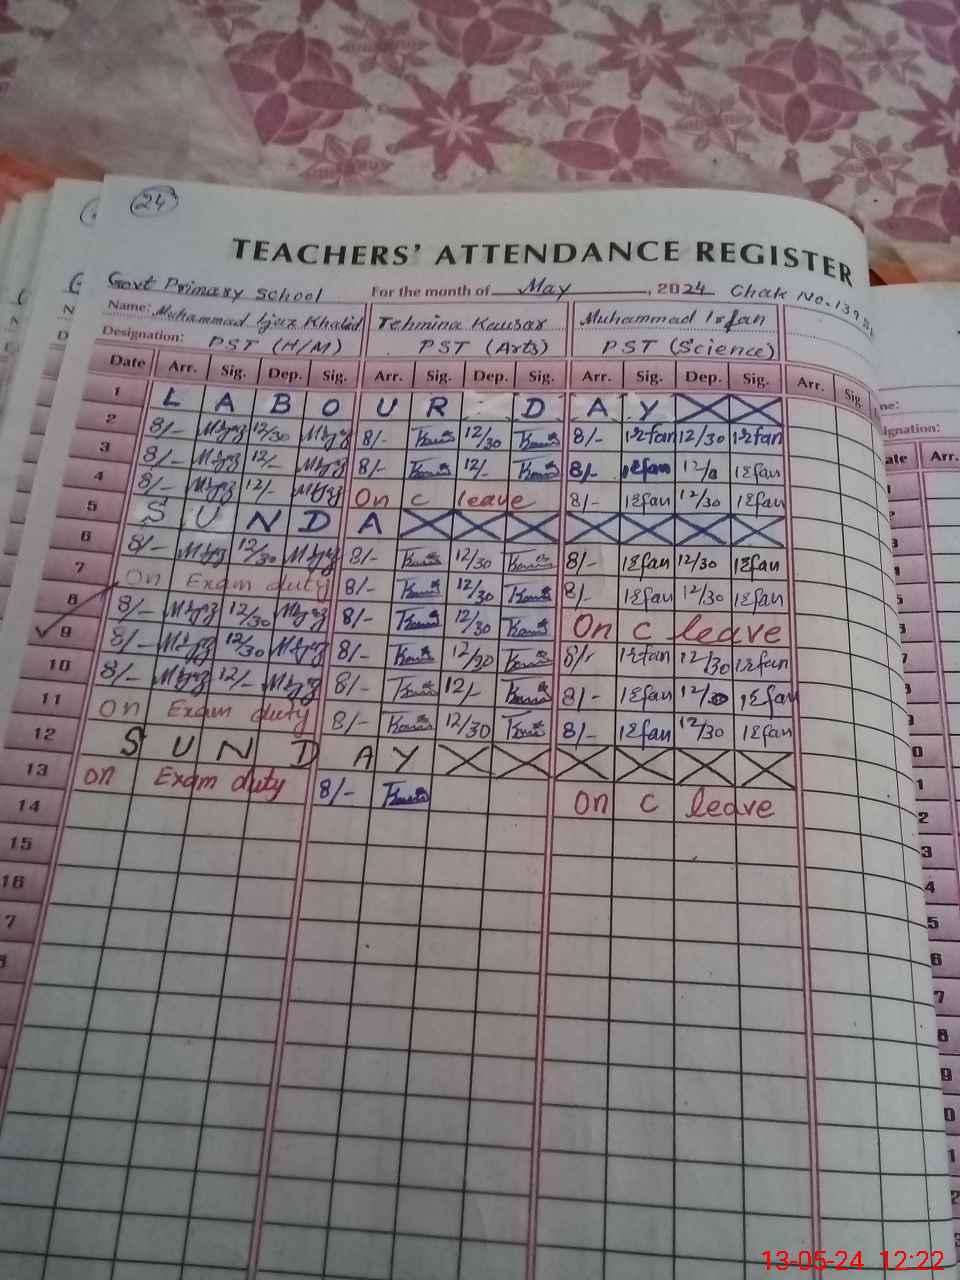 24
TEACHERS' ATTENDANCE REGISTER
Govt Primary School For the month of May, 2024 Chak No. 139
Name: Muhammad Ijaz Khalid Tehmina Kausar Muhammad Irfan
Designation: PST (H/M) PST (Arts) PST (Science)
Date Arr. Sig. Dep. Sig. Arr. Sig. Dep. Sig. Arr. Sig. Dep. Sig. Arr. Sig.
1 L A B O U R D A Y
2 8/- 12/30 8/- 12/30 8/- Irfan 12/30 Irfan
3 8/- 12/- 8/- 12/- 8/- Irfan Irfan
4 8/- 12/- On C leave 8/- Irfan 12/30 Irfan
5 S U N D A
6 8/- 12/30 8/- 12/30 8/- Irfan 12/30 Irfan
7 On Exam duty 8/- 12/30 8/- Irfan 12/30 Irfan
8 8/- 12/30 8/- 12/30 On C leave
9 8/- 12/30 8/- 12/30 8/- Irfan 12/30 Irfan
10 8/- 12/- 8/- 12/- 8/- Irfan Irfan
11 On Exam duty 8/- 12/30 8/- Irfan 12/30 Irfan
12 S U N D A Y
13 On Exam duty 8/- On C leave
14
15
16
7
13-05-24 12:22